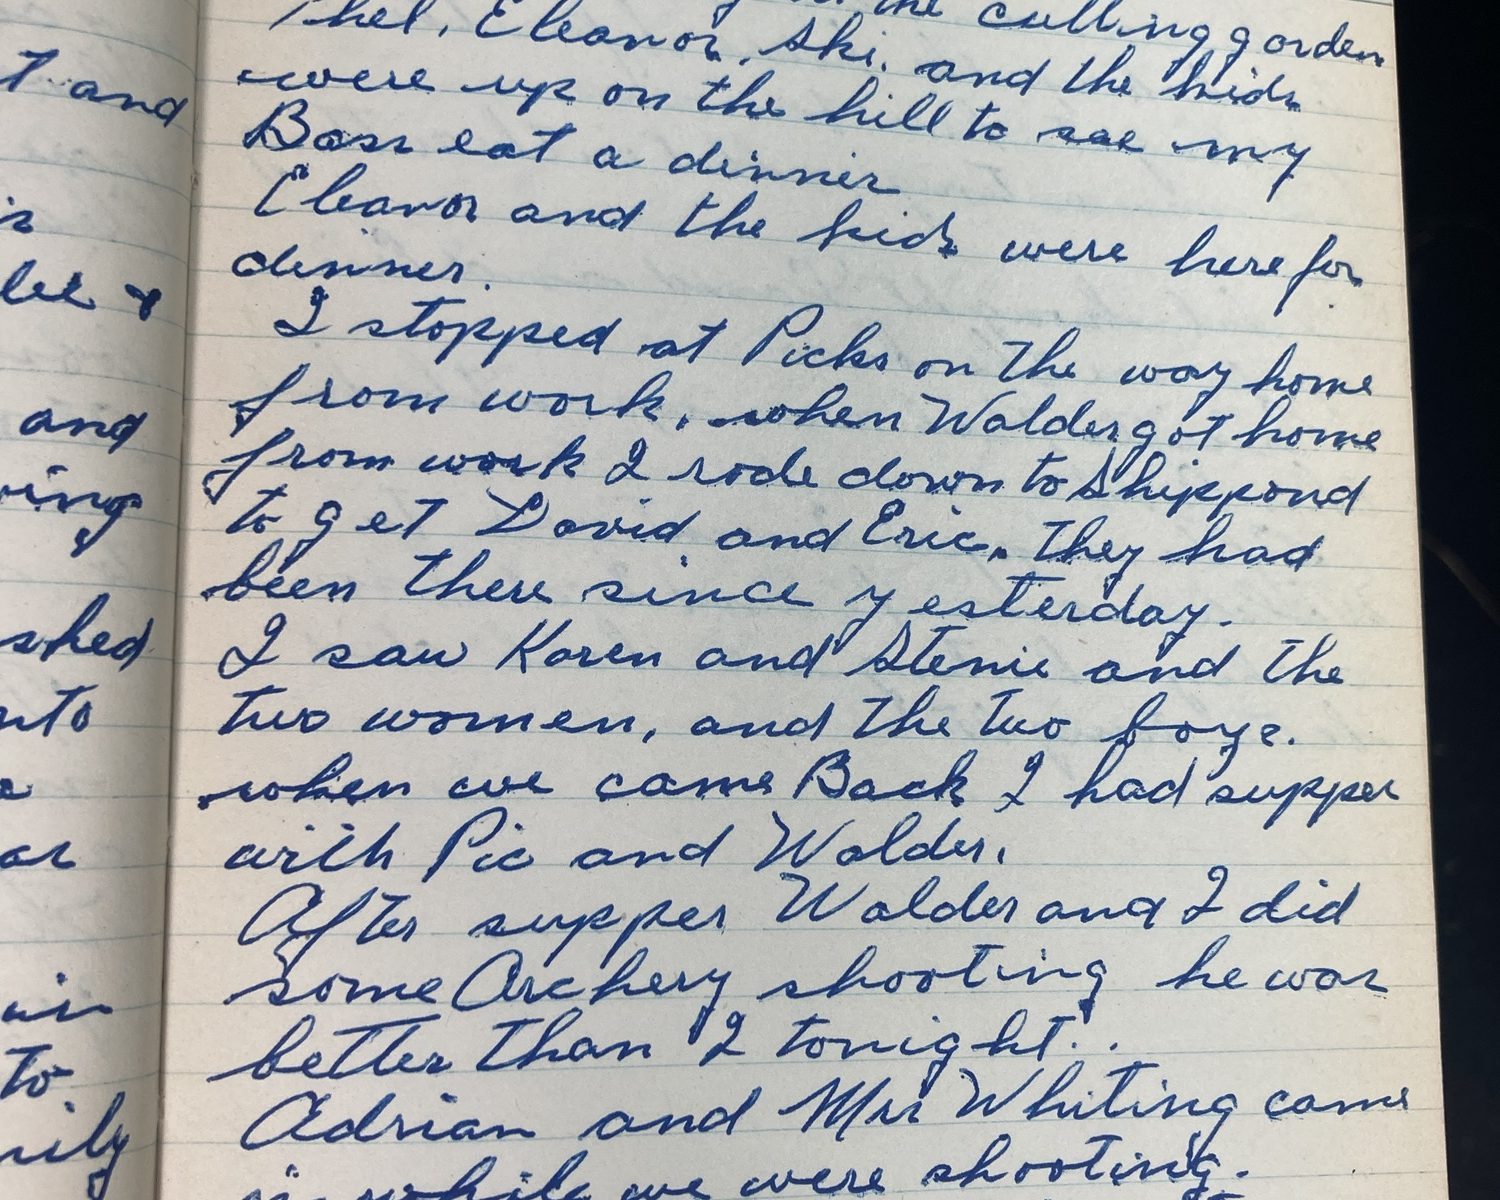 t and
and
ving
shed
nto
to
the cutting garden
Thel, Eleanor, Ski, and the kids
were up on the hill to see my
Bass eat a dinner
Eleanor and the kids were here for
dinner.
I stopped at Picks on the way home
from work, when Walder got home
from work I rode down to Shippond
to get David and Eric, they had
been there since yesterday.
I saw Karen and Stenie and the
two women, and the two boys.
when we came Back I had supper
with Pic and Walder.
After supper Walder and I did
some Archery shooting he was
better than I tonight..
Adrian and Mrs Whiting came
in while we were shooting.